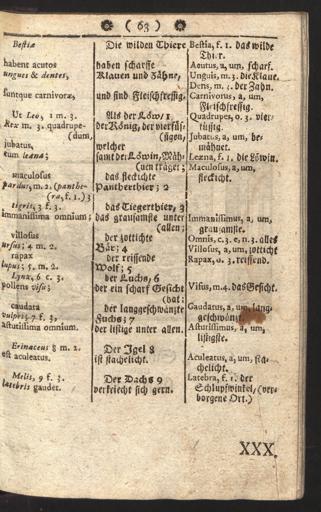 ( 63 )
Bestiæ
habent acutos
ungues & dentes,
suntque carnivoræ,
Ut Leo, 1 m. 3.
Rex m. 3. quadrupe-
(dum,
jubatus,
cum leæna;
maculosus
pardus, m. 2. (panthe-
(ra, f. 1.) 3
tigris, 3 f. 3.
immanissima omnium;
villosus
ursus; 4 m. 2.
rapax
lupus; 5. m. 2.
Lynx, 6 c. 3.
pollens visu;
caudata
vulpis, 7 f. 3.
astutissima omnium.
Erinaceus 8 m. 2.
est aculeatus.
Melis, 9 f. 3.
latebris gaudet.
Die wilden Thiere
haben scharffe
Klauen und Zähne,
und sind Fleischfressig.
Als der Löw/ 1
der König, der vierfüs-
(sigen,
welcher
samt der Löwin, Mäh-
(nen träget;
das fleckichte
Pantherthier; 2
das Tiegerthier, 3
das grausamste unter
(allen;
der zottichte
Bär; 4
der reissende
Wolf; 5
der Luchs, 6
der ein scharf Gesicht
(hat;
der langgeschwänzte
Fuchs; 7
der listige unter allen.
Der Igel 8
ist stachelicht.
Der Dachs 9
verkriecht sich gern.
Bestia, f. 1. das wilde
Thier.
Acutus, a, um, scharf.
Unguis, m. 3. die Klaue.
Dens, m. 3. der Zahn.
Carnivorus, a, um,
Fleischfressig.
Quadrupes, o. 3. vier-
füssig.
Jubatus, a, um, be-
mähnet.
Leæna, f. 1. die Löwin.
Maculosus, a, um,
fleckicht.
Immanissimus, a, um,
grausamste.
Omnis, c. 3. e, n. 3. alles
Villosus, a, um, zotticht
Rapax, o. 3. reissend.
Visus, m. 4. das Gesicht.
Caudatus, a, um, lang-
geschwänzt
Astutissimus, a, um,
listigste.
Aculeatus, a, um, sta-
chelicht.
Latebra, f. 1. der
Schlupfwinkel, (ver-
borgene Ort.)
XXX.